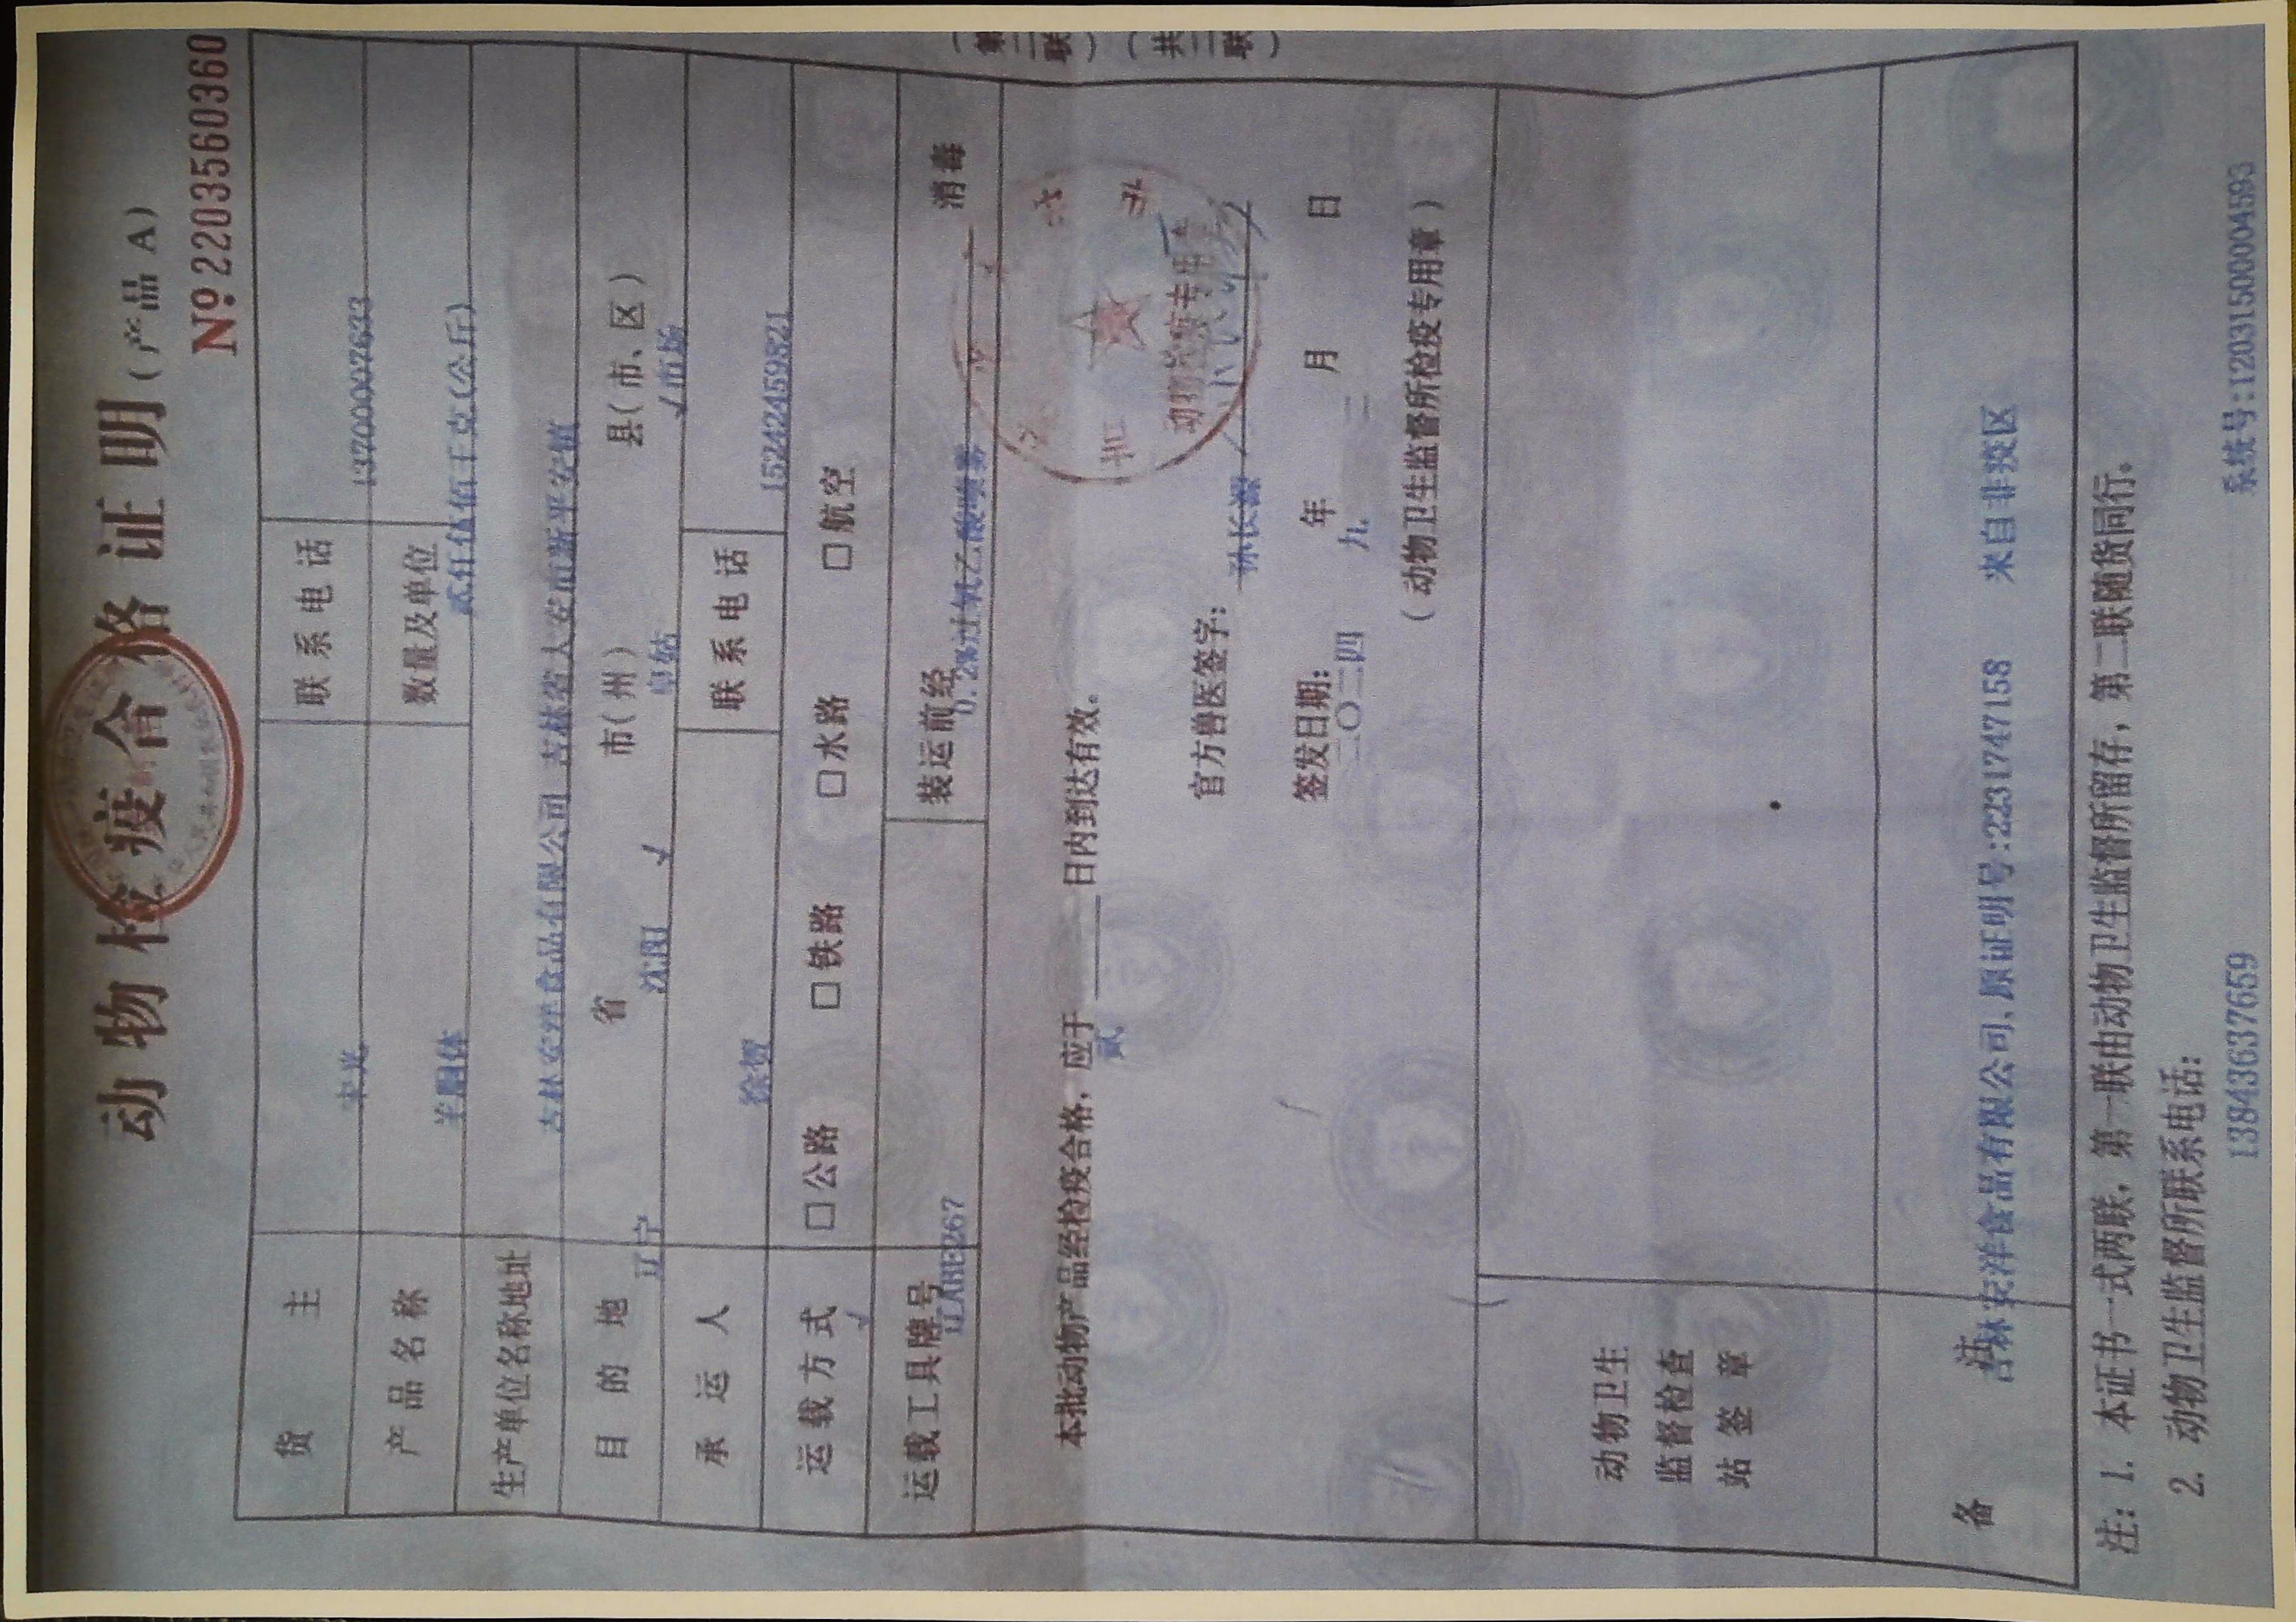 动物检疫合格证明(产品 A)
№2203560360
货主 宋光 联系电话 13700007633
产品名称 羊胴体 数量及单位 贰仟伍佰千克(公斤)
生产单位名称地址 吉林安洋食品有限公司 吉林省大安市新平安镇
目的地 省 市(州) 县(市、区)
辽宁 沈阳 √ 皇姑 √市场
承运人 徐贺 联系电话 15242459821
运载方式 √ □公路 □铁路 □水路 □航空
运载工具牌号 装运前经 消毒
0.2%过氧乙酸喷雾
本批动物产品经检疫合格,应于 日内到达有效。
贰
官方兽医签字: 孙长源
动物检疫专用章
签发日期: 年 月 日
二〇二四 九 二
(动物卫生监督所检疫专用章)
(第二联)
(共二联)
动物卫生
监督检查
站签章
备注
吉林安洋食品有限公司,原证明号:2231747158 来自非疫区
注: 1. 本证书一式两联,第一联由动物卫生监督所留存,第二联随货同行。
2. 动物卫生监督所联系电话:
13843637659 系统号:120315000004593